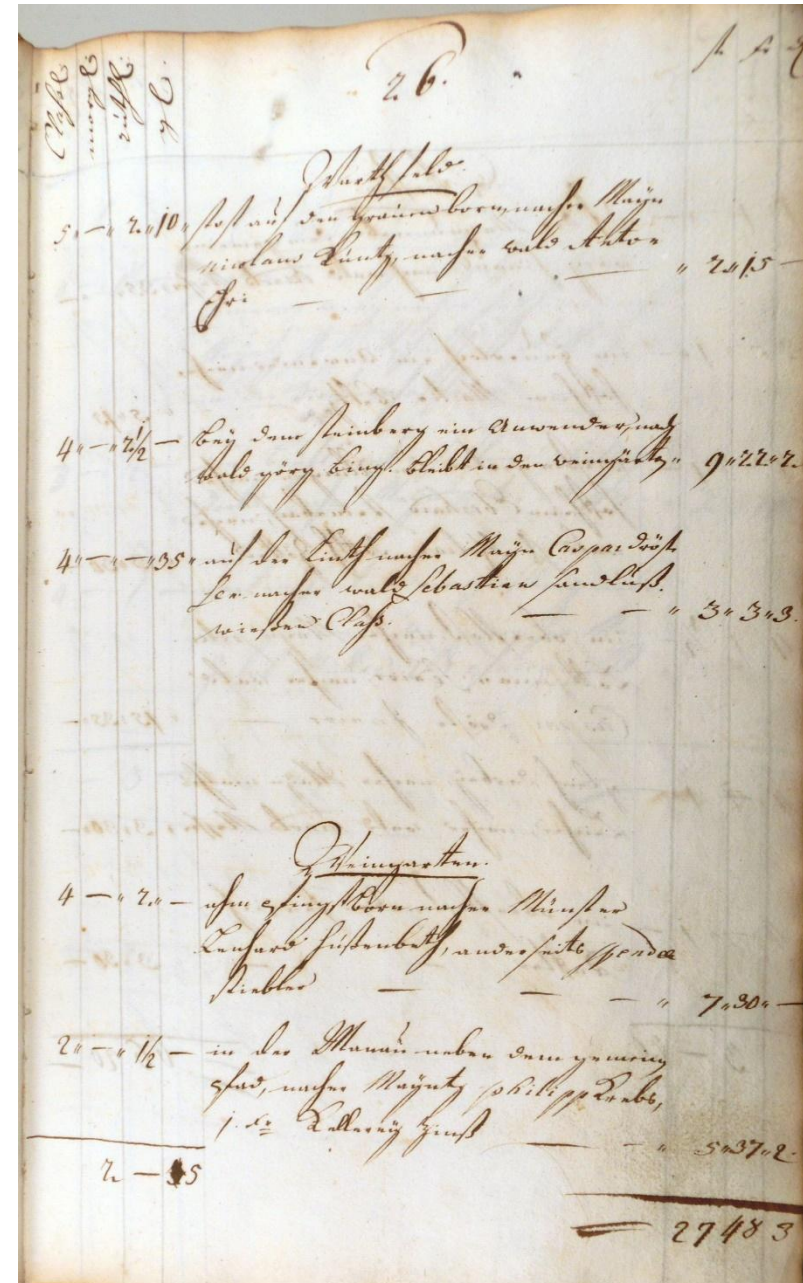 26.
Class
morg
ruth
fl x
Warthfeld
5 " — " 2 " 10 " stost auf den grauen born, nacher Mayn
nicolaus Kuntz, nacher wald Anto=
" 2 " 15 —
4 " — " 2 1/2 — bey dem steinberg ein Anwender, nach
wald görg bing. bleibt in den weingärten " 9 " 22 " 2.
4 " — " — " 35 " auf der nacher Mayn Caspar dröst
ler nacher wald Sebastian
wießen Class. — — " 3 " 3 " 3.
Weingarten.
4 — " 2 " — ahm pfingstborn nacher Münster
Lenhard hußenbeth, anderseits
stiebler — — — " 7 " 30 " —
2 " — " 1 1/2 — in der neben dem gemeinen
pfad, nacher Mayntz philipp Krebs,
Kellerey zinß — — " 5 " 37 " 2.
2 — 5
27 48 3